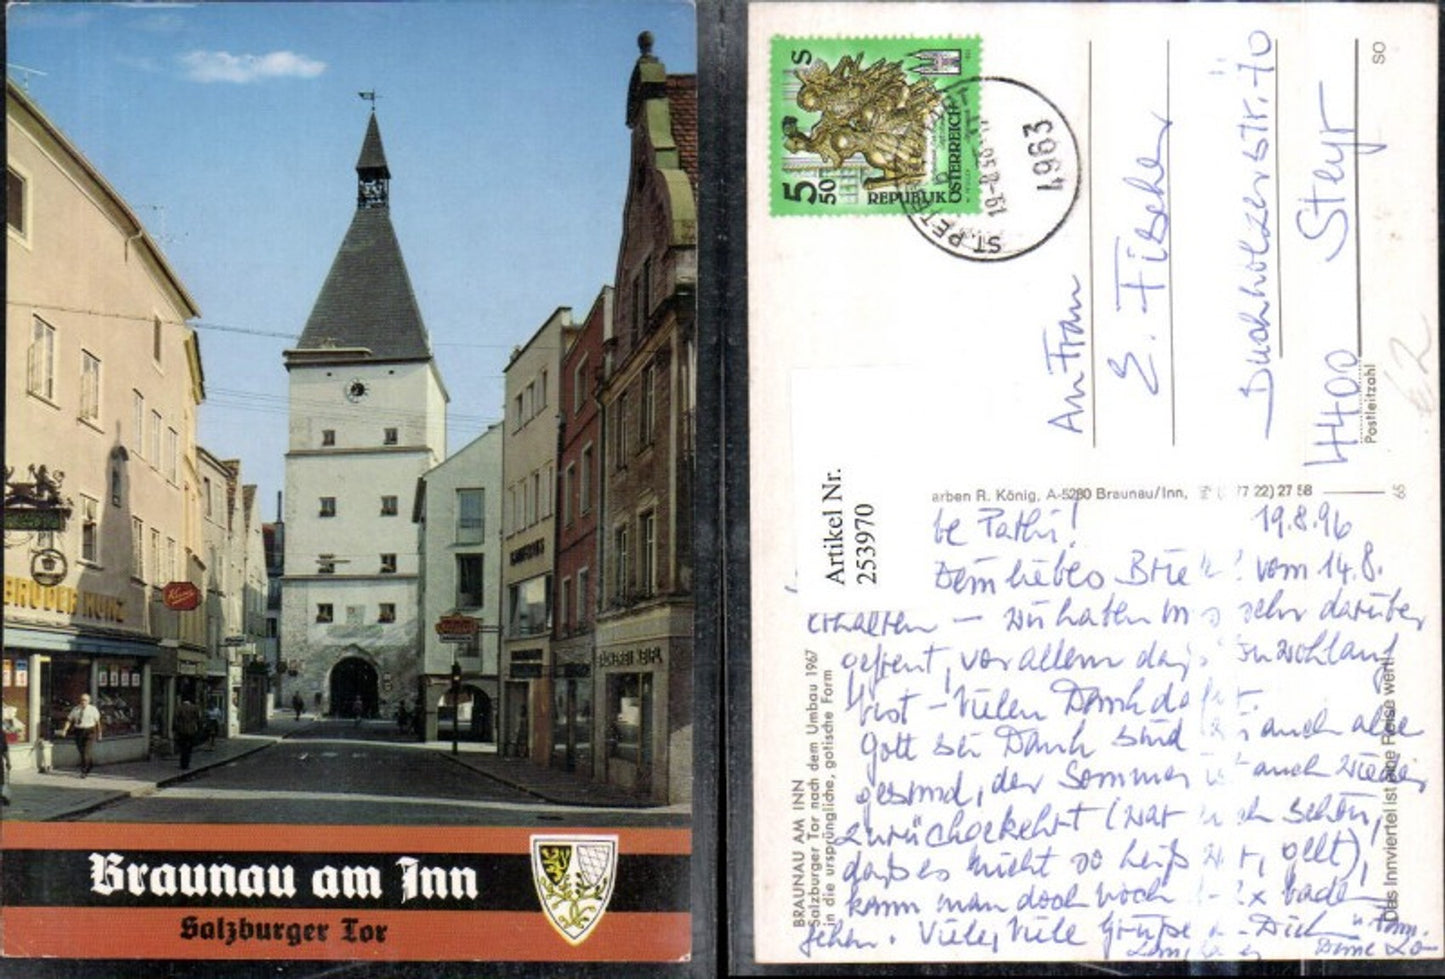 BRÜDER KUNZ
Kunz
BÄCKEREI KEIPL
Braunau am Inn
Salzburger Tor
S
5
50
REPUBLIK ÖSTERREICH
ST. PETER
19.-8.96
4963
An Frau
E. Fischer
Buchholzerstr. 70
4400 Steyr
Postleitzahl
SO
€2
Artikel Nr.
253970
arben R. König, A-5280 Braunau/Inn, 77 22) 27 58
65
BRAUNAU AM INN
Salzburger Tor nach dem Umbau 1967
in die ursprüngliche, gotische Form
Das Innviertel ist eine Reise wert!
be Pathi! 19.8.96
Dein liebes vom 14.8.
erhalten – wir haben sehr darüber
gefreut, vor allem
hast – Vielen Dank
Gott sei Dank sind auch alle
gesund, der Sommer ist auch wieder
zurückgekehrt (war schön,
daß es nicht so heiß gelt),
kann man doch noch baden
gehen. Viele, viele Grüße